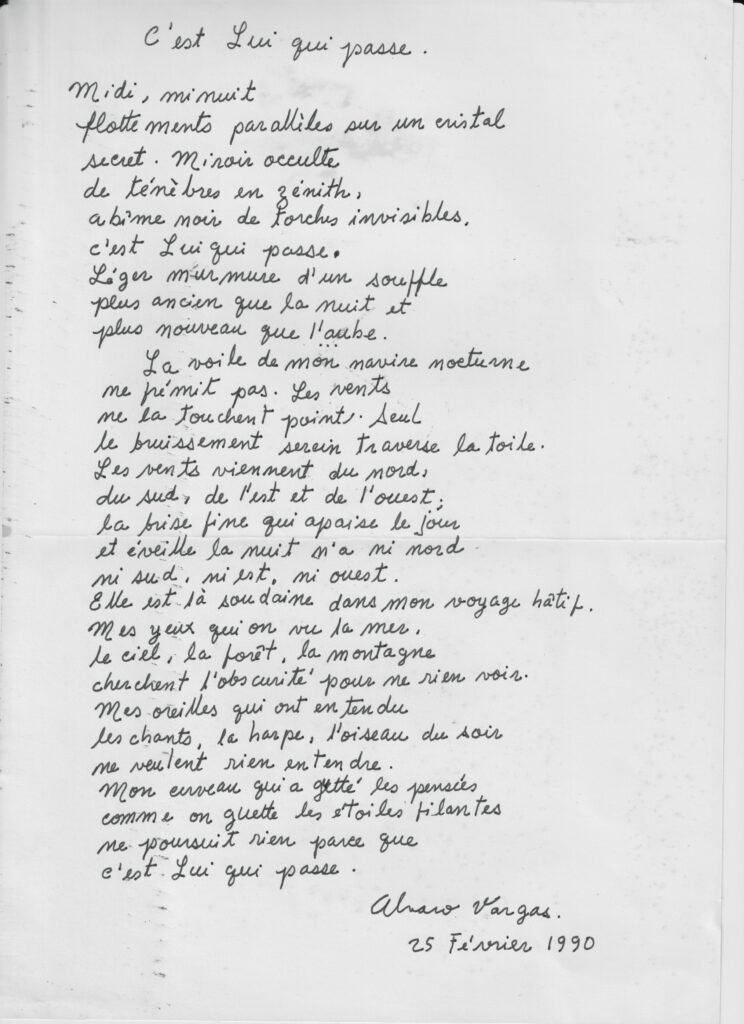 C'est Lui qui passe.
Midi, minuit
flottements parallèles sur un cristal
secret. Miroir occulte
de ténèbres en zénith,
abîme noir de torches invisibles,
c'est Lui qui passe.
Léger murmure d'un souffle
plus ancien que la nuit et
plus nouveau que l'aube.
La voile de mon navire nocturne
ne frémit pas. Les vents
ne la touchent point. Seul
le bruissement serein traverse la toile.
Les vents viennent du nord,
du sud, de l'est et de l'ouest;
la brise fine qui apaise le jour
et éveille la nuit n'a ni nord
ni sud, ni est, ni ouest.
Elle est là soudaine dans mon voyage hâtif.
Mes yeux qui on vu la mer,
le ciel, la forêt, la montagne
cherchent l'obscurité pour ne rien voir.
Mes oreilles qui ont entendu
les chants, la harpe, l'oiseau du soir
ne veulent rien entendre.
Mon cerveau qui a guetté les pensées
comme on guette les étoiles filantes
ne poursuit rien parce que
c'est Lui qui passe.
Alvaro Vargas.
25 Février 1990